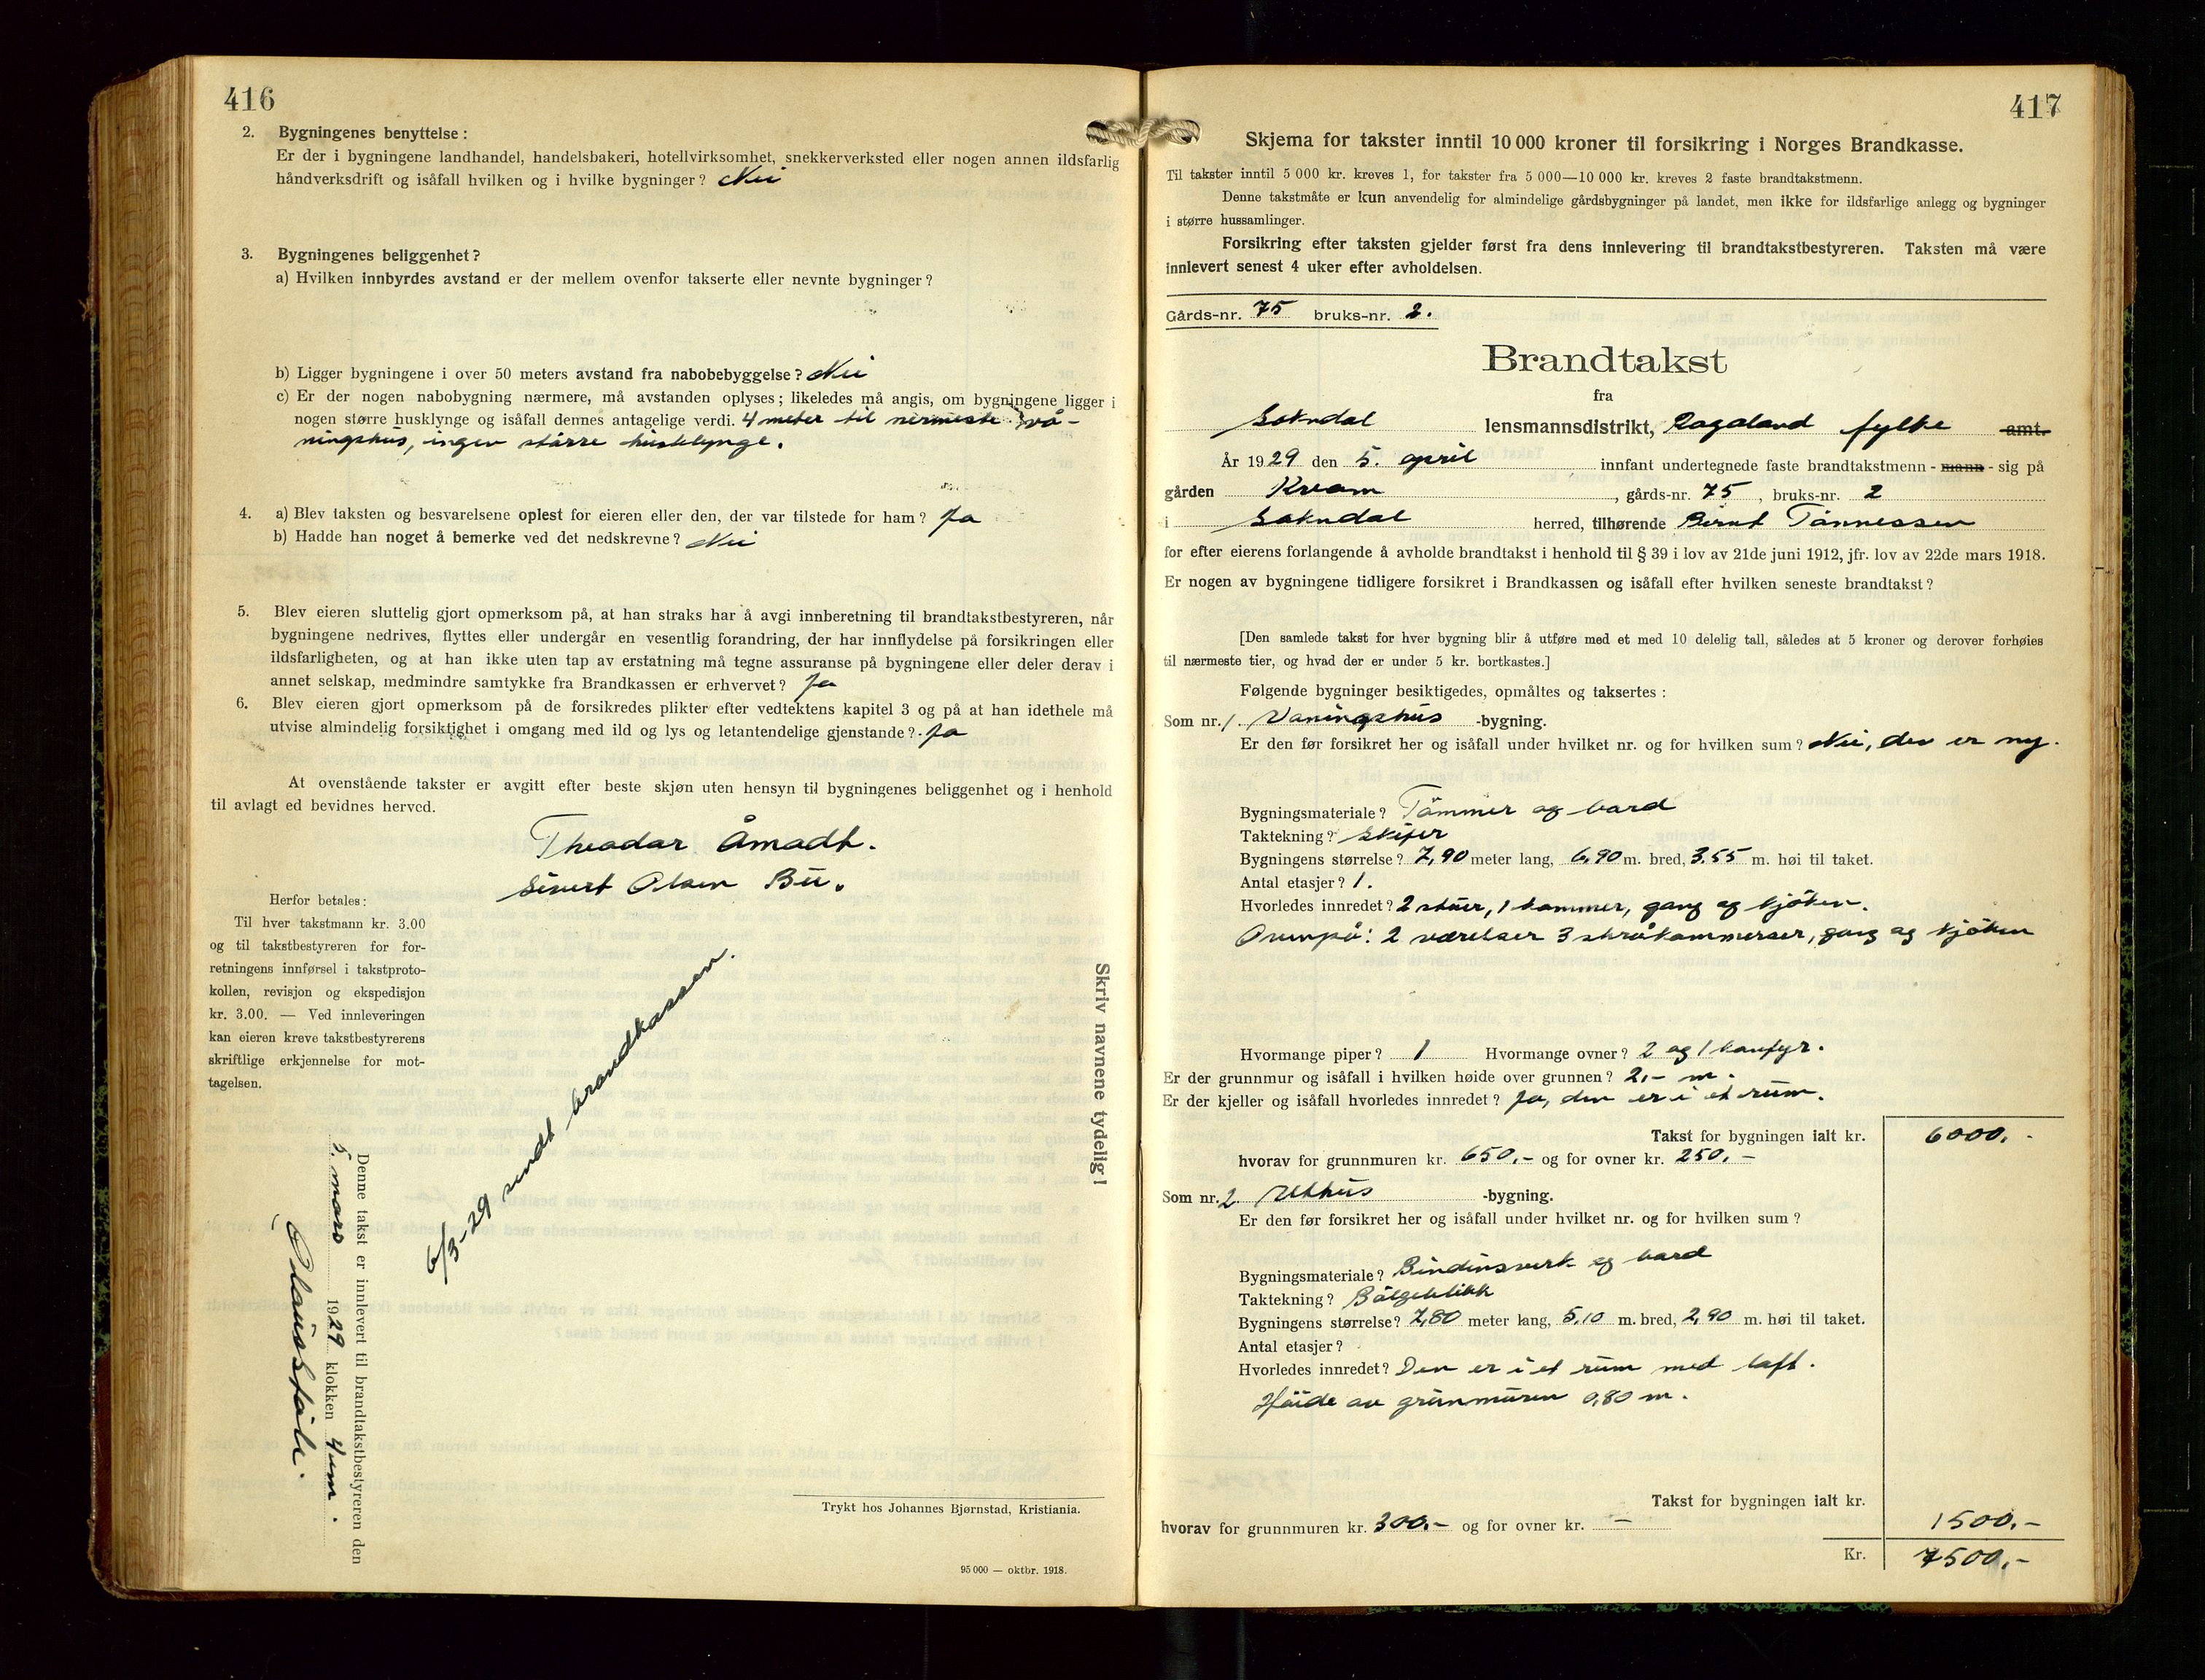 416
2. Bygningenes benyttelse:
Er der i bygningene landhandel, handelsbakeri, hotellvirksomhet, snekkerverksted eller nogen annen ildsfarlig
håndverksdrift og isåfall hvilken og i hvilke bygninger? Nei
3. Bygningenes beliggenhet?
a) Hvilken innbyrdes avstand er der mellem ovenfor takserte eller nevnte bygninger?
b) Ligger bygningene i over 50 meters avstand fra nabobebyggelse? Nei
c) Er der nogen nabobygning nærmere, må avstanden oplyses; likeledes må angis, om bygningene ligger i
nogen større husklynge og isåfall dennes antagelige verdi. 4 meter til nermeste vå-
ningshus, ingen større husklynge.
4. a) Blev taksten og besvarelsene oplest for eieren eller den, der var tilstede for ham? Ja
b) Hadde han noget å bemerke ved det nedskrevne? Nei
5. Blev eieren sluttelig gjort opmerksom på, at han straks har å avgi innberetning til brandtakstbestyreren, når
bygningene nedrives, flyttes eller undergår en vesentlig forandring, der har innflydelse på forsikringen eller
ildsfarligheten, og at han ikke uten tap av erstatning må tegne assuranse på bygningene eller deler derav i
annet selskap, medmindre samtykke fra Brandkassen er erhvervet? Ja
6. Blev eieren gjort opmerksom på de forsikredes plikter efter vedtektens kapitel 3 og på at han idethele må
utvise almindelig forsiktighet i omgang med ild og lys og letantendelige gjenstande? Ja
At ovenstående takster er avgitt efter beste skjøn uten hensyn til bygningenes beliggenhet og i henhold
til avlagt ed bevidnes herved.
Theodor Åmodt.
Sivert Olsen Bü.
Herfor betales:
Til hver takstmann kr. 3.00
og til takstbestyreren for for-
retningens innførsel i takstproto-
kollen, revisjon og ekspedisjon
kr. 3.00. — Ved innleveringen
kan eieren kreve takstbestyrerens
skriftlige erkjennelse for mot-
tagelsen.
6/3-29 sendt brandkassen.
Skriv navnene tydelig!
Denne takst er innlevert til brandtakstbestyreren den
5. mars 1929 klokken 4 em.
Trykt hos Johannes Bjørnstad, Kristiania.
95 000 — oktbr. 1918.
417
Skjema for takster inntil 10 000 kroner til forsikring i Norges Brandkasse.
Til takster inntil 5 000 kr. kreves 1, for takster fra 5 000—10 000 kr. kreves 2 faste brandtakstmenn.
Denne takstmåte er kun anvendelig for almindelige gårdsbygninger på landet, men ikke for ildsfarlige anlegg og bygninger
i større hussamlinger.
Forsikring efter taksten gjelder først fra dens innlevering til brandtakstbestyreren. Taksten må være
innlevert senest 4 uker efter avholdelsen.
Gårds-nr. 75 bruks-nr. 2.
Brandtakst
fra
Sokndal lensmannsdistrikt, Rogaland fylke amt.
År 1929 den 5. april innfant undertegnede faste brandtakstmenn - mann - sig på
gården Kvam, gårds-nr. 75, bruks-nr. 2
i Sokndal herred, tilhørende Bernt Tønnessen
for efter eierens forlangende å avholde brandtakst i henhold til § 39 i lov av 21de juni 1912, jfr. lov av 22de mars 1918.
Er nogen av bygningene tidligere forsikret i Brandkassen og isåfall efter hvilken seneste brandtakst?
[Den samlede takst for hver bygning blir å utføre med et med 10 delelig tall, således at 5 kroner og derover forhøies
til nærmeste tier, og hvad der er under 5 kr. bortkastes.]
Følgende bygninger besiktigedes, opmåltes og taksertes:
Som nr. 1 Vaningshus -bygning.
Er den før forsikret her og isåfall under hvilket nr. og for hvilken sum? Nei, den er ny.
Bygningsmateriale? Tømmer og bord
Taktekning? Skifer
Bygningens størrelse? 7,90 meter lang, 6,90 m. bred, 3,55 m. høi til taket.
Antal etasjer? 1.
Hvorledes innredet? 2 stuer, 1 kammer, gang og kjøken.
Ovenpå: 2 værelser 3 skråkammerser, gang og kjøken
Hvormange piper? 1 Hvormange ovner? 2 og 1 komfyr.
Er der grunnmur og isåfall i hvilken høide over grunnen? 2,- m.
Er der kjeller og isåfall hvorledes innredet? Ja, den er i et rum.
Takst for bygningen ialt kr. 6000,-
hvorav for grunnmuren kr. 650,- og for ovner kr. 250,-
Som nr. 2 Uthus -bygning.
Er den før forsikret her og isåfall under hvilket nr. og for hvilken sum?
Bygningsmateriale? Bindinsverk og bord
Taktekning? Bölgeblikk
Bygningens størrelse? 7,80 meter lang, 5,10 m. bred, 2,90 m. høi til taket.
Antal etasjer?
Hvorledes innredet? Den er i et rum med loft.
Høide av grunmuren 0,80 m.
Takst for bygningen ialt kr.
hvorav for grunnmuren kr. 300,- og for ovner kr. — 1500,-
Kr. 7500,-